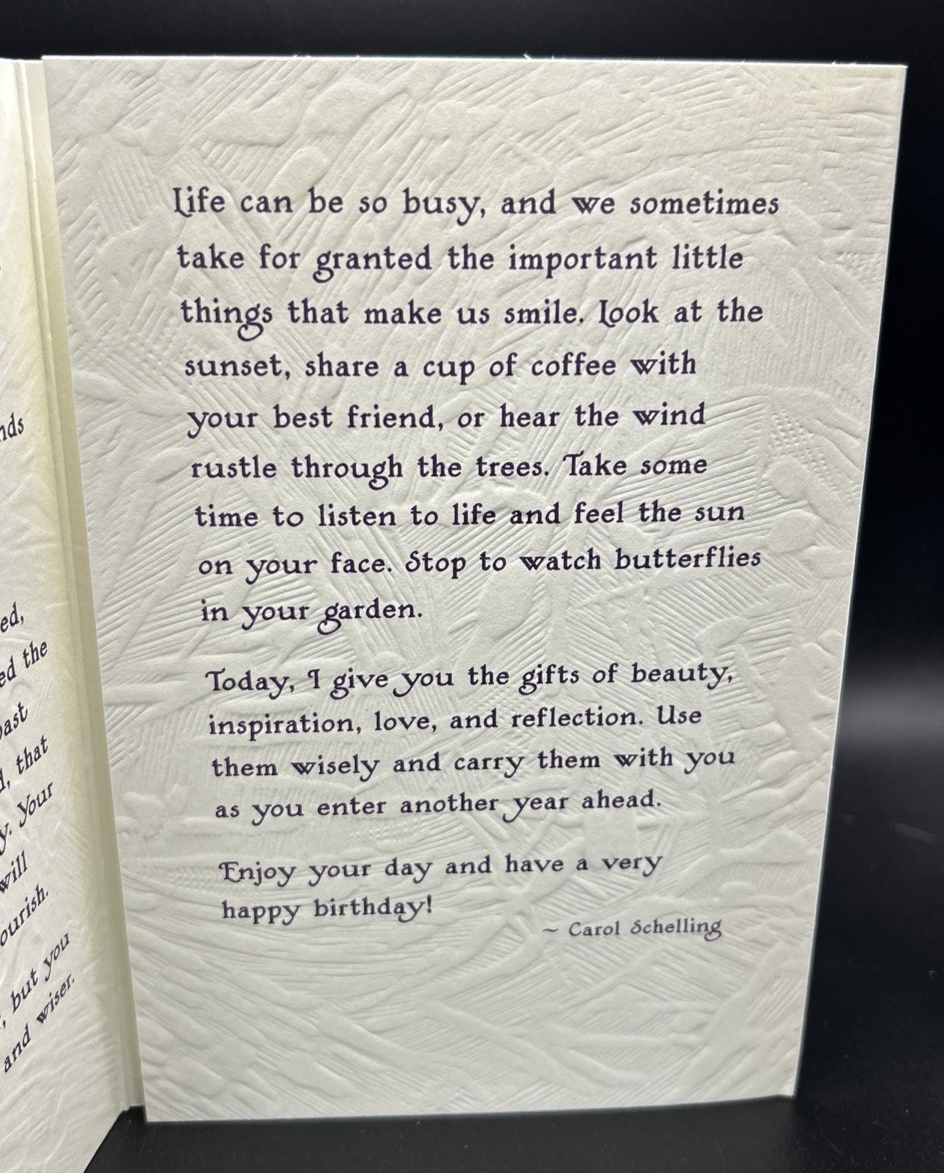 Life can be so busy, and we sometimes
take for granted the important little
things that make us smile. Look at the
sunset, share a cup of coffee with
your best friend, or hear the wind
rustle through the trees. Take some
time to listen to life and feel the sun
on your face. Stop to watch butterflies
in your garden.
Today, I give you the gifts of beauty,
inspiration, love, and reflection. Use
them wisely and carry them with you
as you enter another year ahead.
Enjoy your day and have a very
happy birthday!
~ Carol Schelling
the
that
Your
will
but you
and wiser.